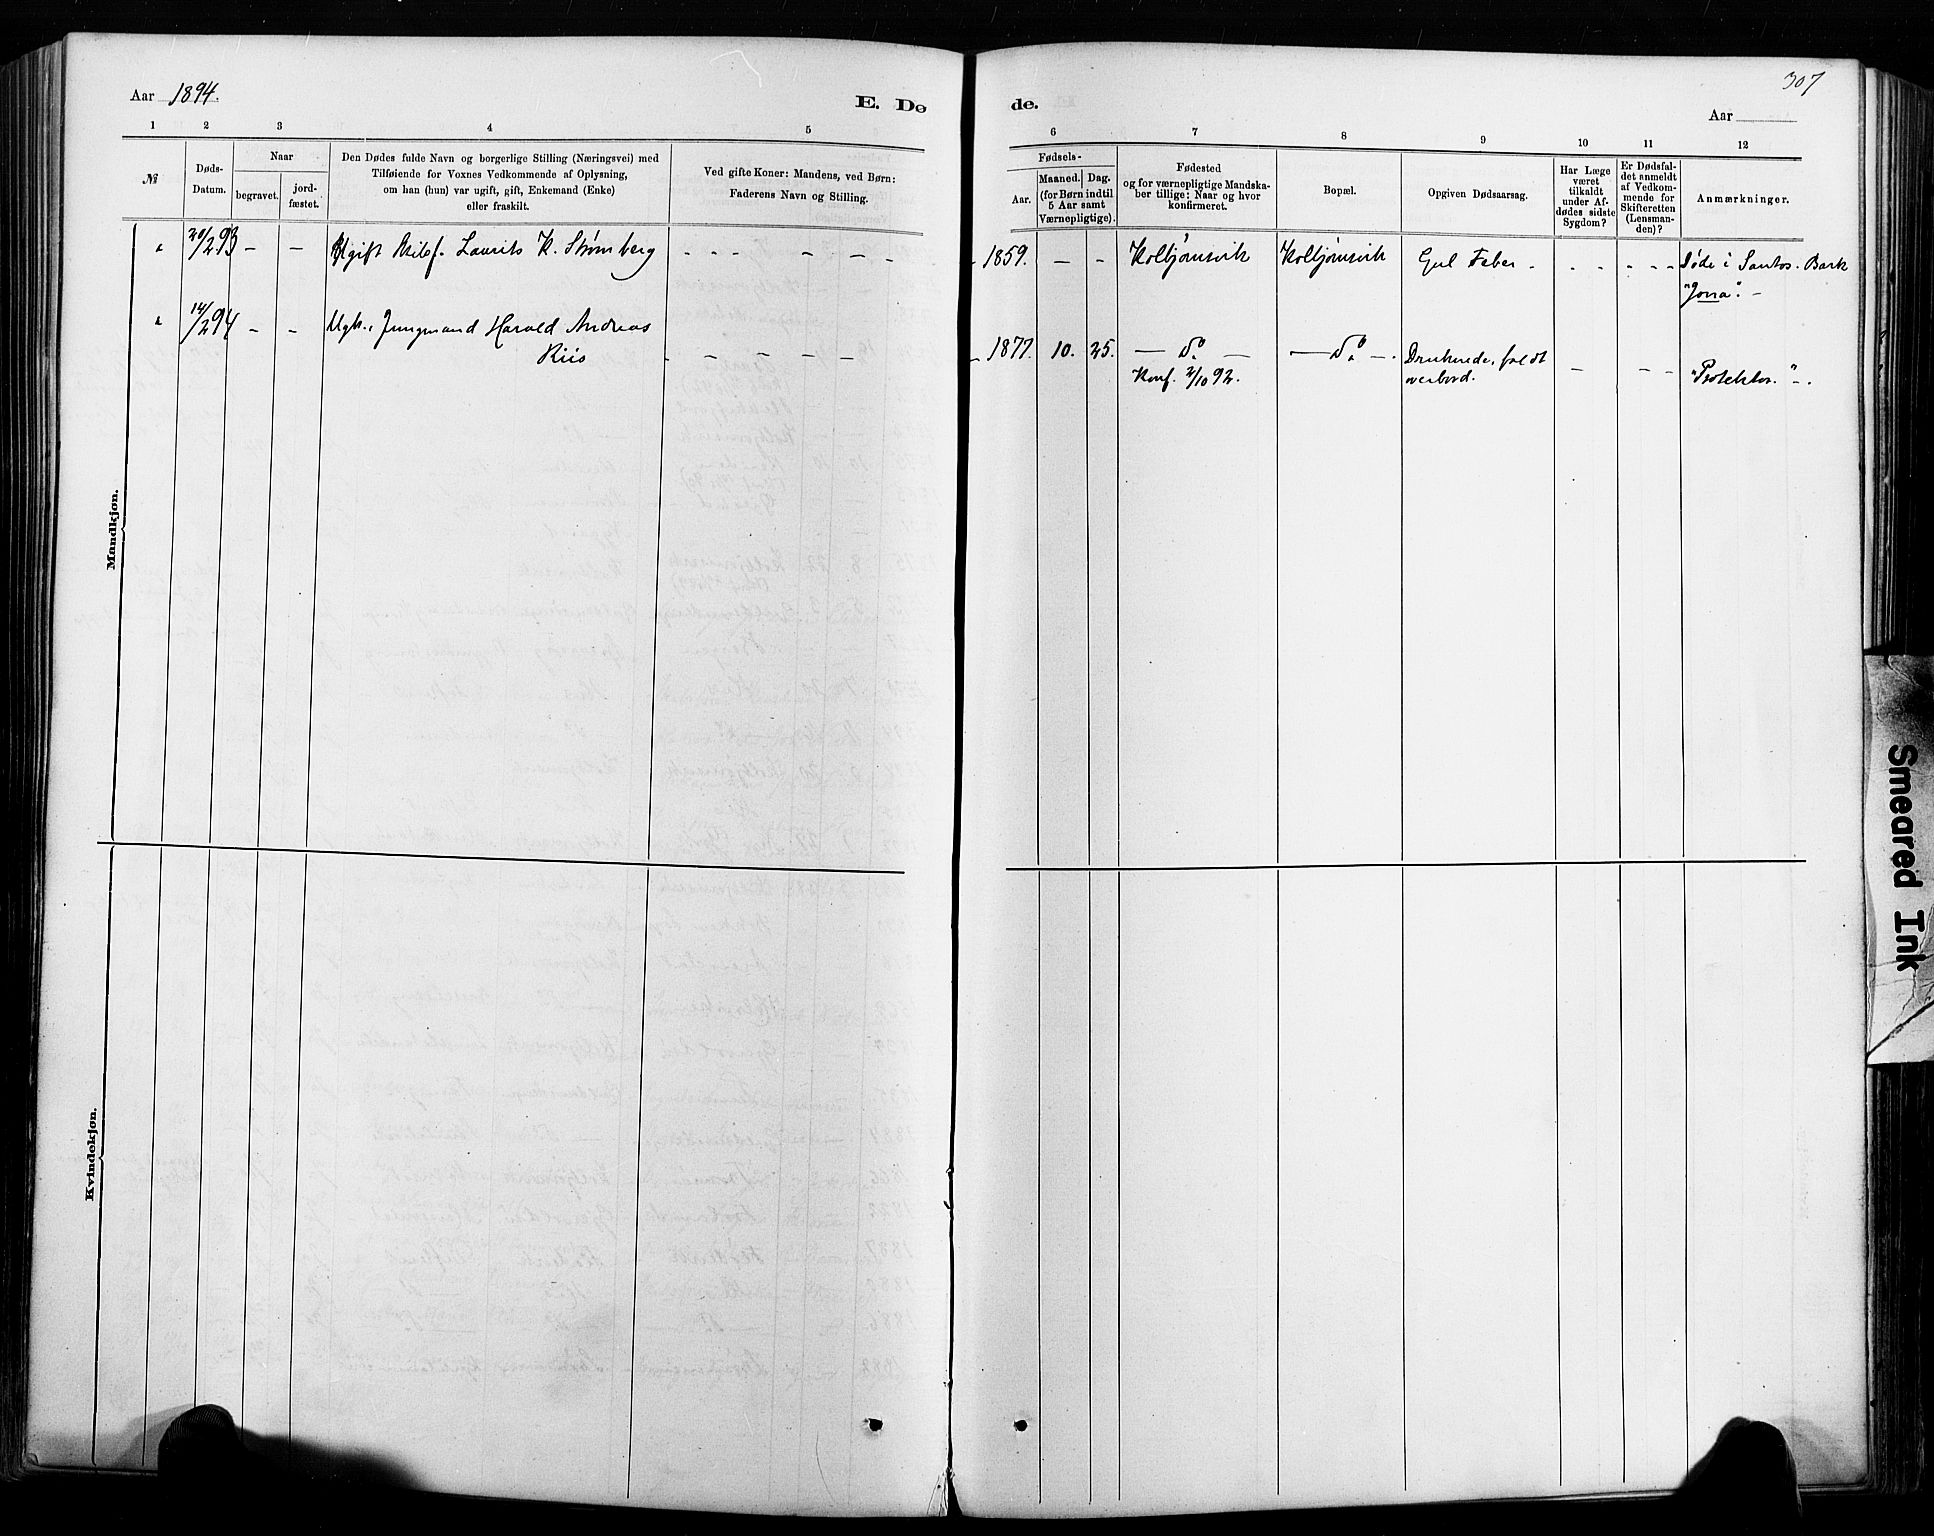 307
Aar 1894.
E. Dø
de.
Aar
1
2
3
4
5
6
7
8
9
10
11
12
№
Døds-
Datum.
Naar
begravet.
jord-
fæstet.
Den Dødes fulde Navn og borgerlige Stilling (Næringsvei) med
Tilføiende for Voxnes Vedkommende af Oplysning,
om han (hun) var ugift, gift, Enkemand (Enke)
eller fraskilt.
Ved gifte Koner: Mandens, ved Børn:
Faderens Navn og Stilling.
Fødsels-
Aar.
Maaned. Dag.
(for Børn indtil
5 Aar samt
Værnepligtige).
Fødested
og for værnepligtige Mandska-
ber tillige: Naar og hvor
konfirmeret.
Bopæl.
Opgiven Dødsaarsag.
Har Læge
været
tilkaldt
under Af-
dødes sidste
Sygdom?
Er Dødsfal-
det anmeldt
af Vedkom-
mende for
Skifteretten
(Lensman-
den)?
Anmærkninger.
20/2 93 - - Ugift Laurits K. Strømberg - - - - - - 1859. - - Kolbjørnsvik Kolbjørnsvik Gul Feber - - - - - - Døde i Santos. Bark
"Jona". -
14/2 94 - - Ugk., Jungmand Harald Andreas
Riis - - - - - 1877. 10. 25. - Do - - Do - Druknede, faldt
Konf. 2/10 92. overbord. - - - "Protektor." -
Mandkjøn.
Kvindekjøn.
Smeared Ink